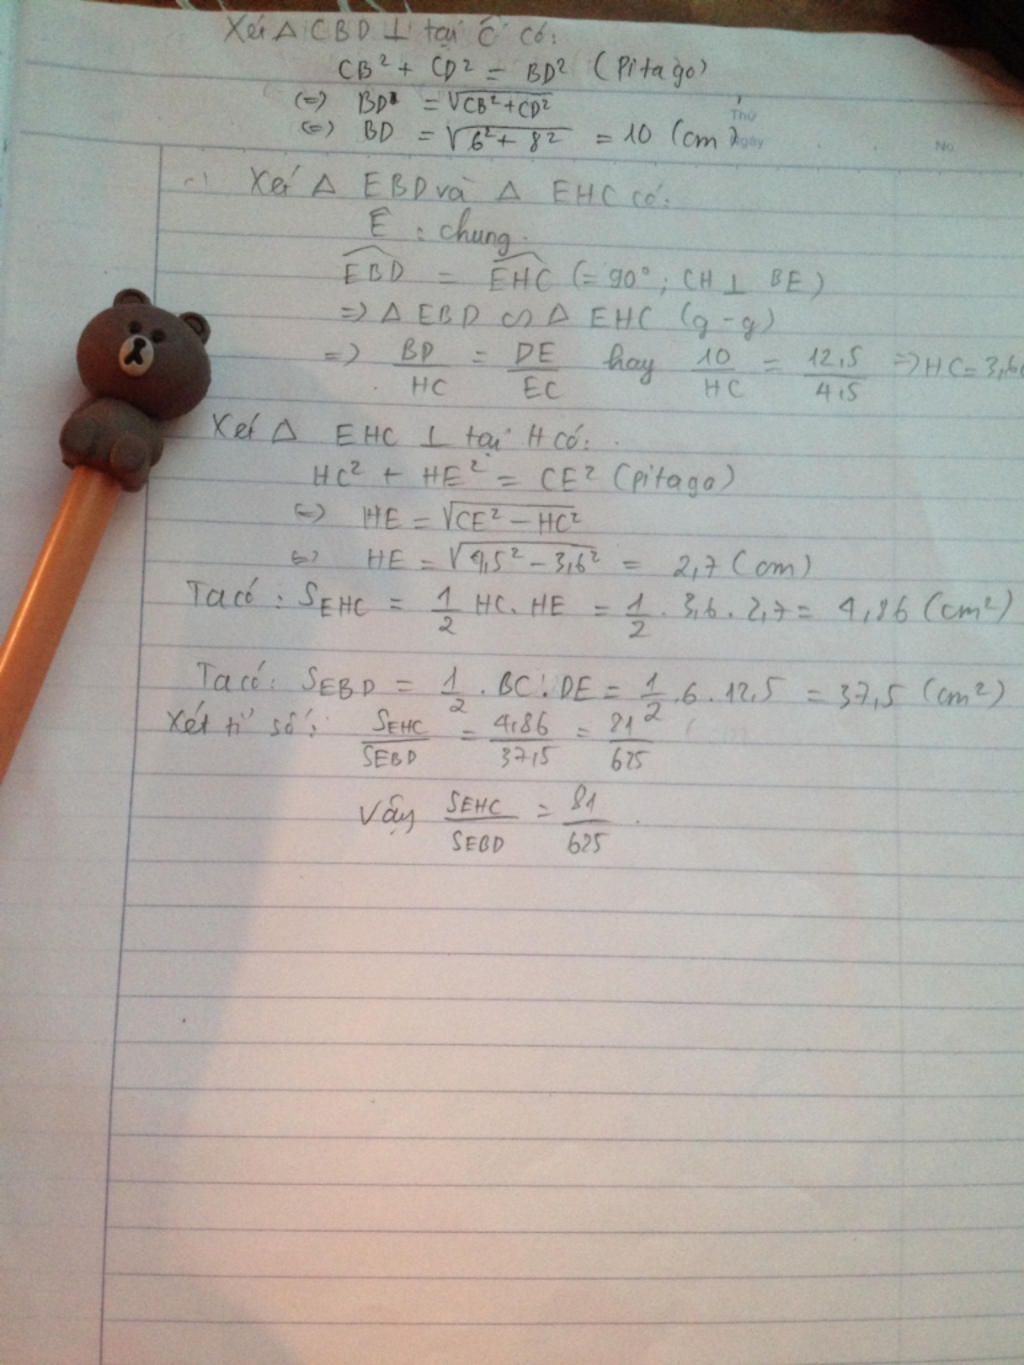 Xét Δ CBD ⊥ tại C có:
CB² + CD² = BD² (Pitago)
(=) BD = √CB² + CD²
(=) BD = √6² + 8² = 10 (cm)
Thứ
Ngày
No
Xét Δ EBD và Δ EHC có:
Ê : chung.
EBD = EHC (= 90°; CH ⊥ BE)
=) Δ EBD ∽ Δ EHC (g-g)
=) BD/HC = DE/EC hay 10/HC = 12,5/4,5 =) HC = 3,6
Xét Δ EHC ⊥ tại H có:
HC² + HE² = CE² (Pitago)
(=) HE = √CE² - HC²
(=) HE = √4,5² - 3,6² = 2,7 (cm)
Ta có: SEHC = 1/2 HC. HE = 1/2 . 3,6 . 2,7 = 4,86 (cm²)
Ta có: SEBD = 1/2 . BC . DE = 1/2 . 6 . 12,5 = 37,5 (cm²)
Xét tỉ số: SEHC/SEBD = 4,86/37,5 = 81/625
Vậy SEHC/SEBD = 81/625 .